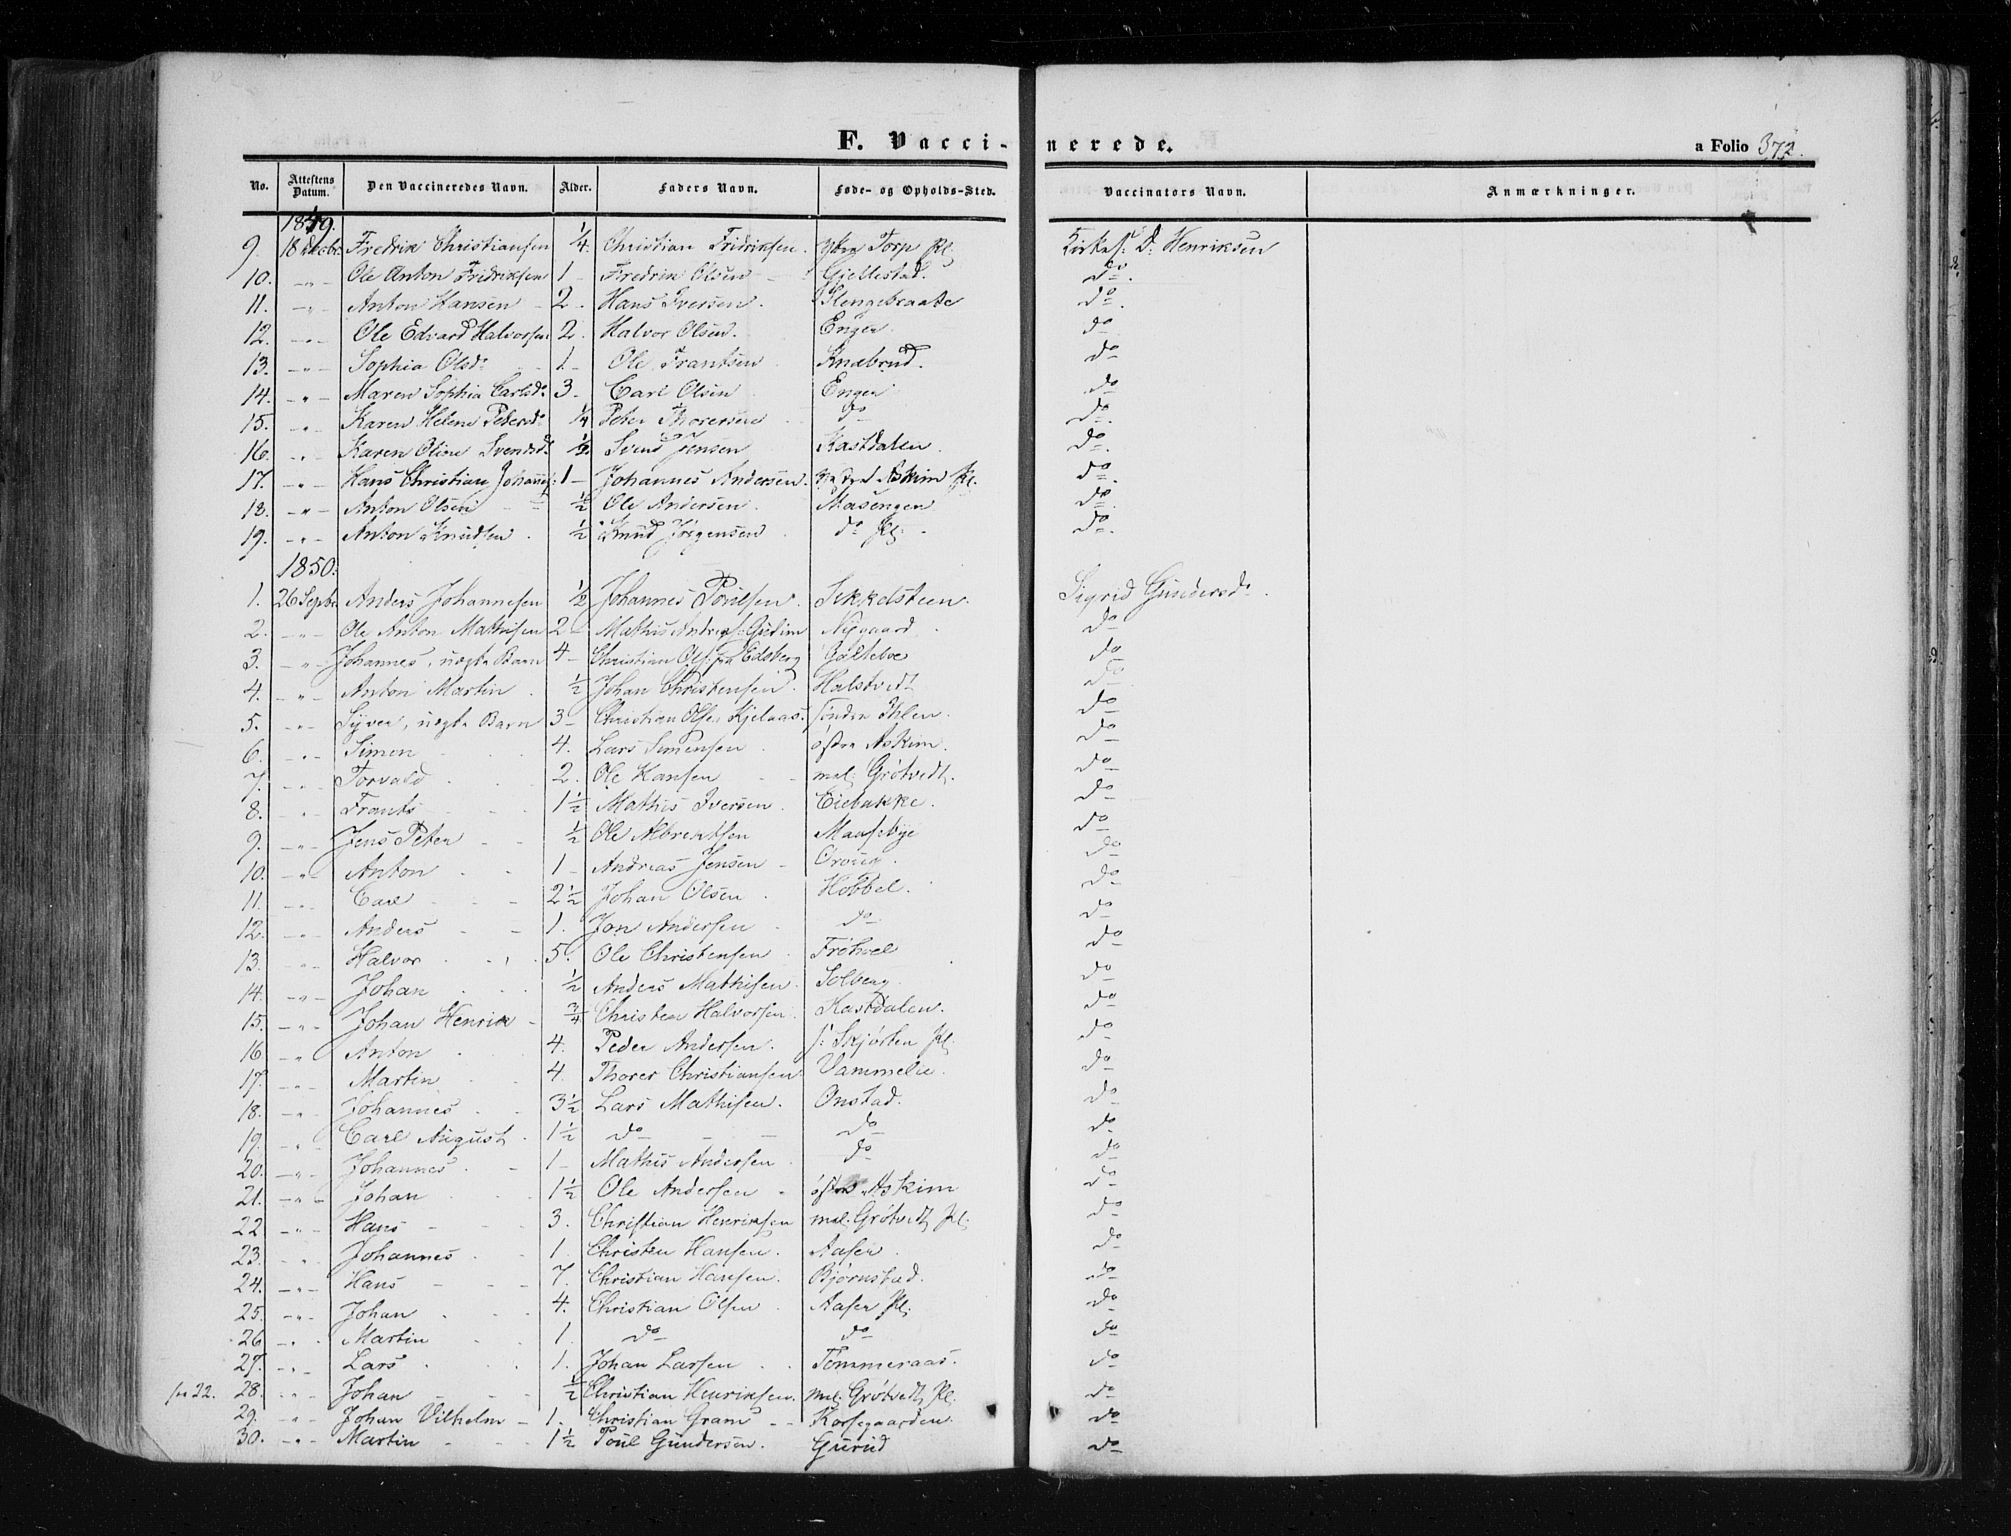 F. Vaccinerede. a Folio 372.
No. Attestens Datum. Den Vaccineredes Navn. Alder. Faders Navn. Føde- og Opholds-Sted. Vaccinators Navn. Anmærkninger.
1849.
9. 18 Decbr Fredrik Christiansen 1/4 Christian Fridriksen. Torp Pl. D: Henriksen
10. -"- Ole Anton Fridriksen 1 - Fredrik Olsen - Gjellestad. do
11. -"- Anton Hansen - 2. Hans Iversen. Slengebraate do
12. -"- Ole Edvard Halvorsen 2. Halvor Olsen. Enger. do
13. -"- Sophia Olsd: 1 - Ole Frantsen Knabrud. do
14. -"- Maren Sophia Carlsd: 3. Carl Olsen Enger do
15. " Karen Helene Pedersd: 1/4 Peter Thorersen do do
16. -"- Karen Oline Svendsd: 1/2 Svend Jensen Kastdalen do
17. -"- Hans Christian Johannes: 1 - Johannes Andersen. Askim Pl. do
18. -"- Anton Olsen 1/2 Ole Andersen. Masengen do
19. -"- Anton Knudsen. 1/2 Knud Jørgensen do Pl. do
1850.
1. 26 Septbr Anders Johannesen 1/2 Johannes Poulsen. Sekkelsteen. Sigrid Gundersd:
2. -"- Ole Anton Mathisen 2 - Mathis Andreas: Gutim Nygaard. do
3. -"- Johannes, uægte Barn 4 - Christian Ols: fra Edsberg Galteboe do
4. -"- Anton Martin. 1/2 Johan Christensen. Halstvedt do
5. -"- Syver, uægte Barn 3 - Christian Olsen Kjelaas: søndre Ihlen. do
6. -"- Simen 4. Lars Simensen østre Askim. do
7. -"- Torvald 2. Ole Hansen mel: Grøtvedt. do
8. " Frants 1 1/2 Mathis Iversen Eiebakke. do
9. -"- Jens Peter 1/2 Ole Albrektsen Maasebye do
10. -"- Anton 1 - Andreas Jensen - Oroug. do
11. -"- Carl 2 1/2 Johan Olsen Hobbel. do
12. -"- Anders 1. Jon Andersen do do
13. -"- Halvor 5. Ole Christensen Frøhoel do
14. -"- Johan 1/2 Anders Mathisen. Solberg. do
15. -"- Johan Henrik - 3/4 Christen Halvorsen. Kastdalen. do
16. -"- Anton 4. Peder Andersen. s: Skjørten Pl. do
17. -"- Martin 4. Thorer Christiansen. Vammelie. do
18. -"- Johannes 3 1/2 Lars Mathisen. Onstad. do
19. -"- Carl August. 1 1/2 do do do
20. -"- Johannes. 1 - Mathis Andersen do do
21. -"- Johan 1 1/2 Ole Andersen østre Askim do
22. -"- Hans 3. Christian Henriksen mel: Grøtvedt Pl. do
23. -"- Johannes 1. Christen Hansen. Aaser. do
24. -"- Hans 7. Christian Hansen. Bjørnstad. do
25. -"- Johan 4. Christian Olsen Aaser Pl. do
26. -"- Martin 1. do do do
27. -"- Lars 1. Johan Larsen Tømmeraas. do
22. 28. -"- Johan 1/2 Christian Henriksen. mel: Grøtvedt Pl. do
29. -"- Johan Vilhelm - 1. Christian Gram - - Korsegaarden. do
30. -"- Martin 1 1/2 Poul Gundersen. Gurud do